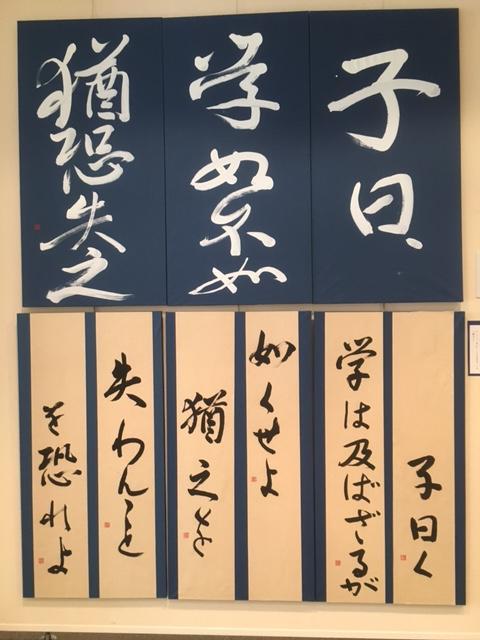 子曰、
学如不如
猶恐失之
子曰く
学は及ばざるが
如くせよ
猶之を
失わんこと
を恐れよ